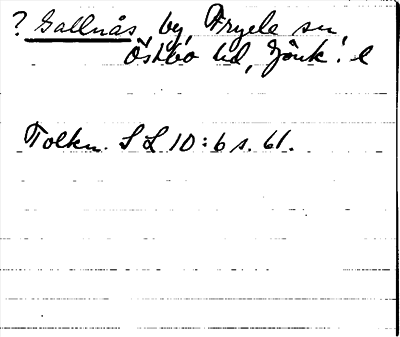 ? Gallnås, by, Fryele sn,
Östbo hd, Jönk. l
Tolkn. SL 10:6 s. 61.